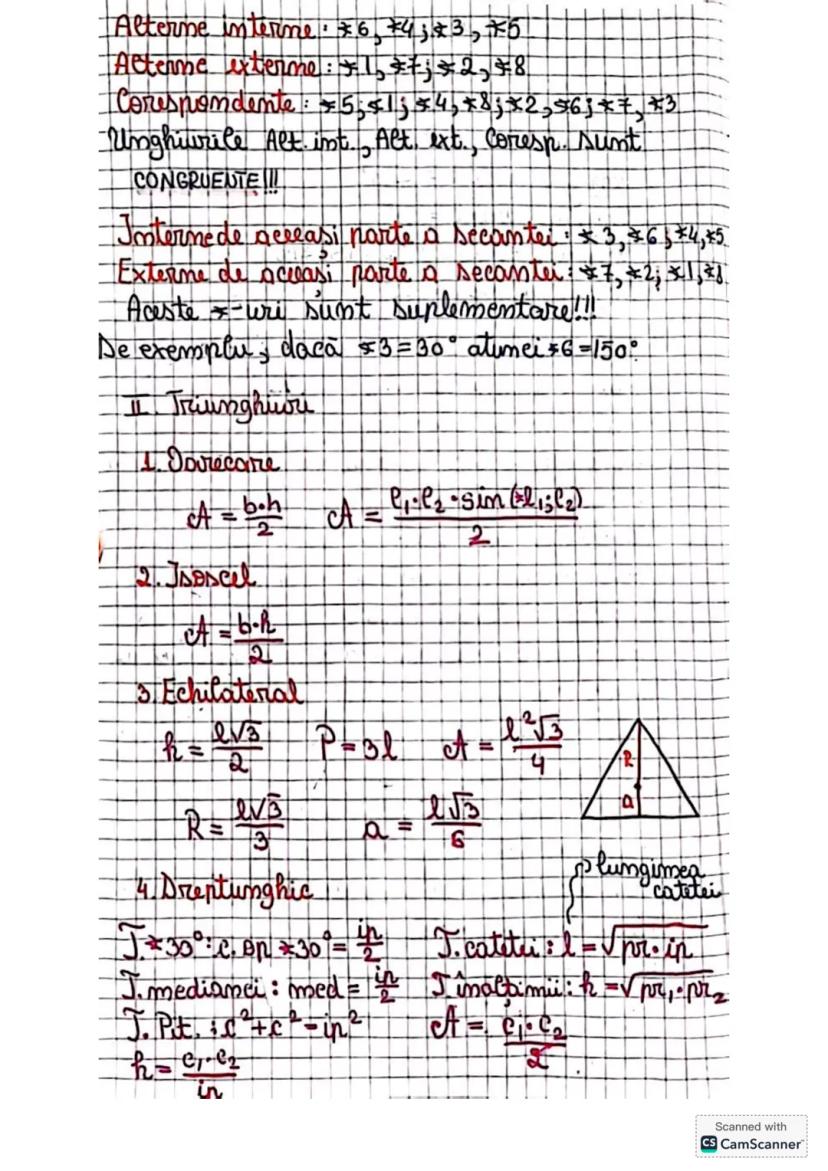 Alterne interne: ∢6, ∢4; ∢3, ∢5
Alterne externe: ∢1, ∢7; ∢2, ∢8
Corespondente: ∢5; ∢1; ∢4, ∢8; ∢2, ∢6; ∢7, ∢3
Unghiurile Alt. int., Alt. ext., Coresp. sunt
CONGRUENTE!!!
Interne de aceeași parte a secantei: ∢3, ∢6; ∢4, ∢5
Externe de aceeași parte a secantei: ∢7, ∢2; ∢1, ∢8
Aceste ∢-uri sunt suplementare!!!
De exemplu; dacă ∢3=30° atunci ∢6=150°.
II. Triunghiuri
1. Oarecare
A = b·h/2 A = l₁·l₂·sin(∢l₁;l₂)/2
2. Isoscel
A = b·h/2
3. Echilateral
h = l√3/2 P=3l A = l²√3/4
R
a
R = l√3/3 a = l√3/6
lungimea
catetei
4. Dreptunghic
T.∢30°: c. op ∢30° = ip/2 T. catetei: l = √pr·ip
T. medianei: med = ip/2 T înălțimii: h = √pr₁·pr₂
T. Pit.: c²+c²=ip² A = c₁·c₂/2
h = c₁·c₂/ip
Scanned with
CS CamScanner